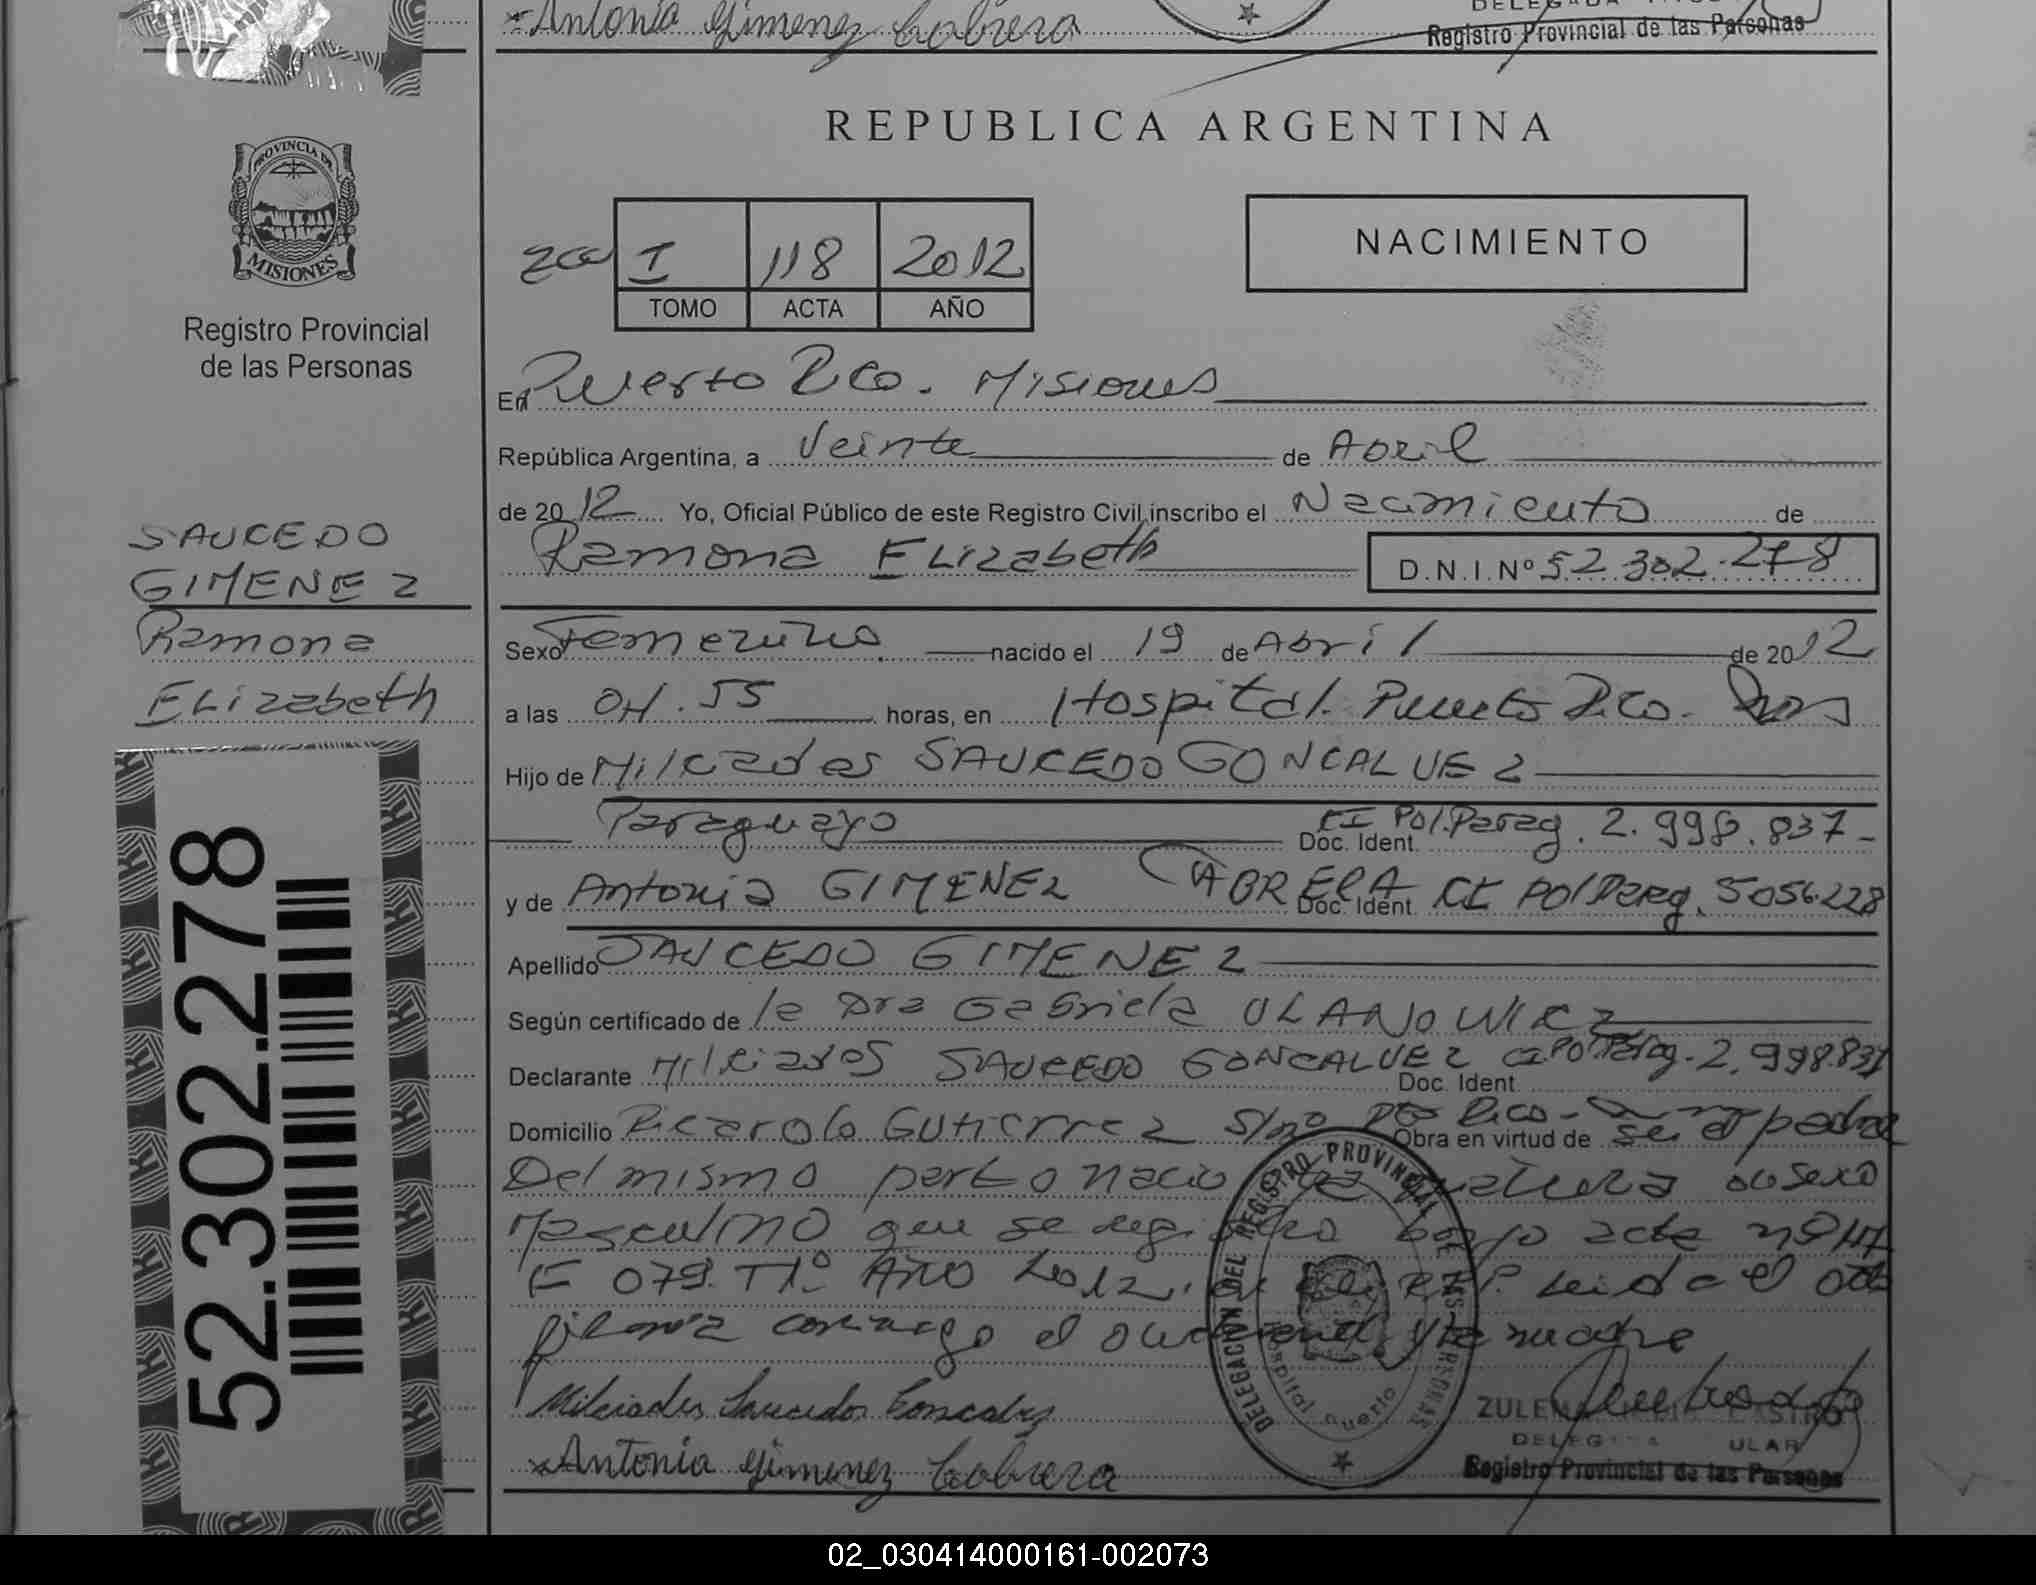 Antonia Gimenez Cabrera
Registro Provincial de las Personas
PROVINCIA DE
MISIONES
Registro Provincial
de las Personas
REPUBLICA ARGENTINA
I 118 2012
TOMO ACTA AÑO
NACIMIENTO
En Puerto Rico. Misiones
República Argentina, a Veinte de Abril
de 2012 Yo, Oficial Público de este Registro Civil inscribo el Nacimiento de
Ramona Elizabeth D.N.I.Nº 52.302.278
SAUCEDO
GIMENEZ
Ramona
Elizabeth
52.302.278
Sexo Femenino nacido el 19 de Abril de 2012
a las 04.55 horas, en Hospital. Puerto Rico.
Hijo de Milciades SAUCEDO GONCALVEZ
Paraguayo Doc. Ident. CI Pol.Parag. 2.998.837-
y de Antonia GIMENEZ CABRERA Doc. Ident. CI Pol Parag. 5056.228
Apellido SAUCEDO GIMENEZ
Según certificado de la Dra Gabriela ULANOWICZ
Declarante Milciades SAUCEDO GONCALVEZ Doc. Ident. CI Pol Parag. 2.998.837
Domicilio Ricardo Gutierrez S/nº Pto Rico- Obra en virtud de ser el padre
Del mismo parto nacio una criatura de sexo
Masculino que se registro bajo acta nº 117
F 079. T1º Año 2012. R.P.P. Leida el acta
firma conmigo el declarante y la madre
Milciades Saucedo Goncalvez
Antonia Gimenez Cabrera
DELEGACION DEL REGISTRO PROVINCIAL DE LAS PERSONAS
Hospital Puerto
ZULEMA CASTRO
Registro Provincial de las Personas
02_030414000161-002073